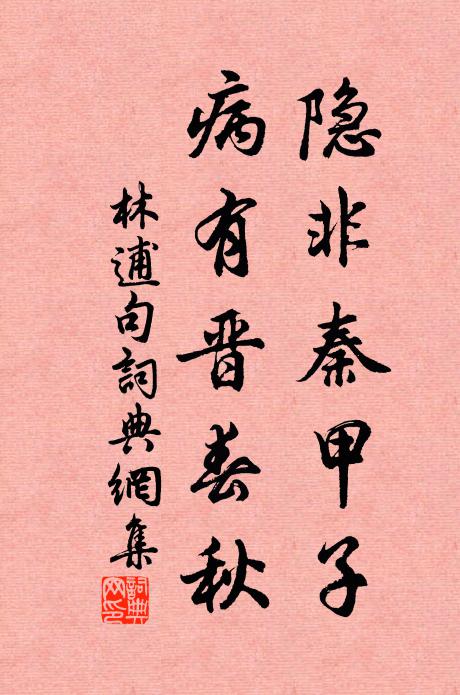 隐非秦甲子
病有晋春秋
林逋句詞典網集
詞典网印